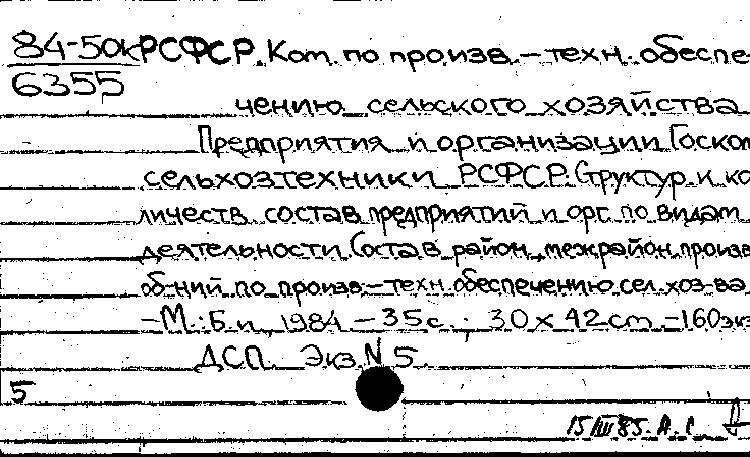 84-50к РСФСР. Ком. по произв.-техн. обеспе-
6355
чению сельского хозяйства
Предприятия и организации Госком
сельхозтехники РСФСР. Структур. и ко
личеств. состав предприятий и орг. по видам
деятельности. Состав район., межрайон. произв
об-ний по произв.-техн. обеспечению сел. хоз-ва
-М.: Б.и., 1984. - 35с.; 30 х 42cm. - 160экз
ДСП. Экз. N 5.
5
15/III 85. А.С.